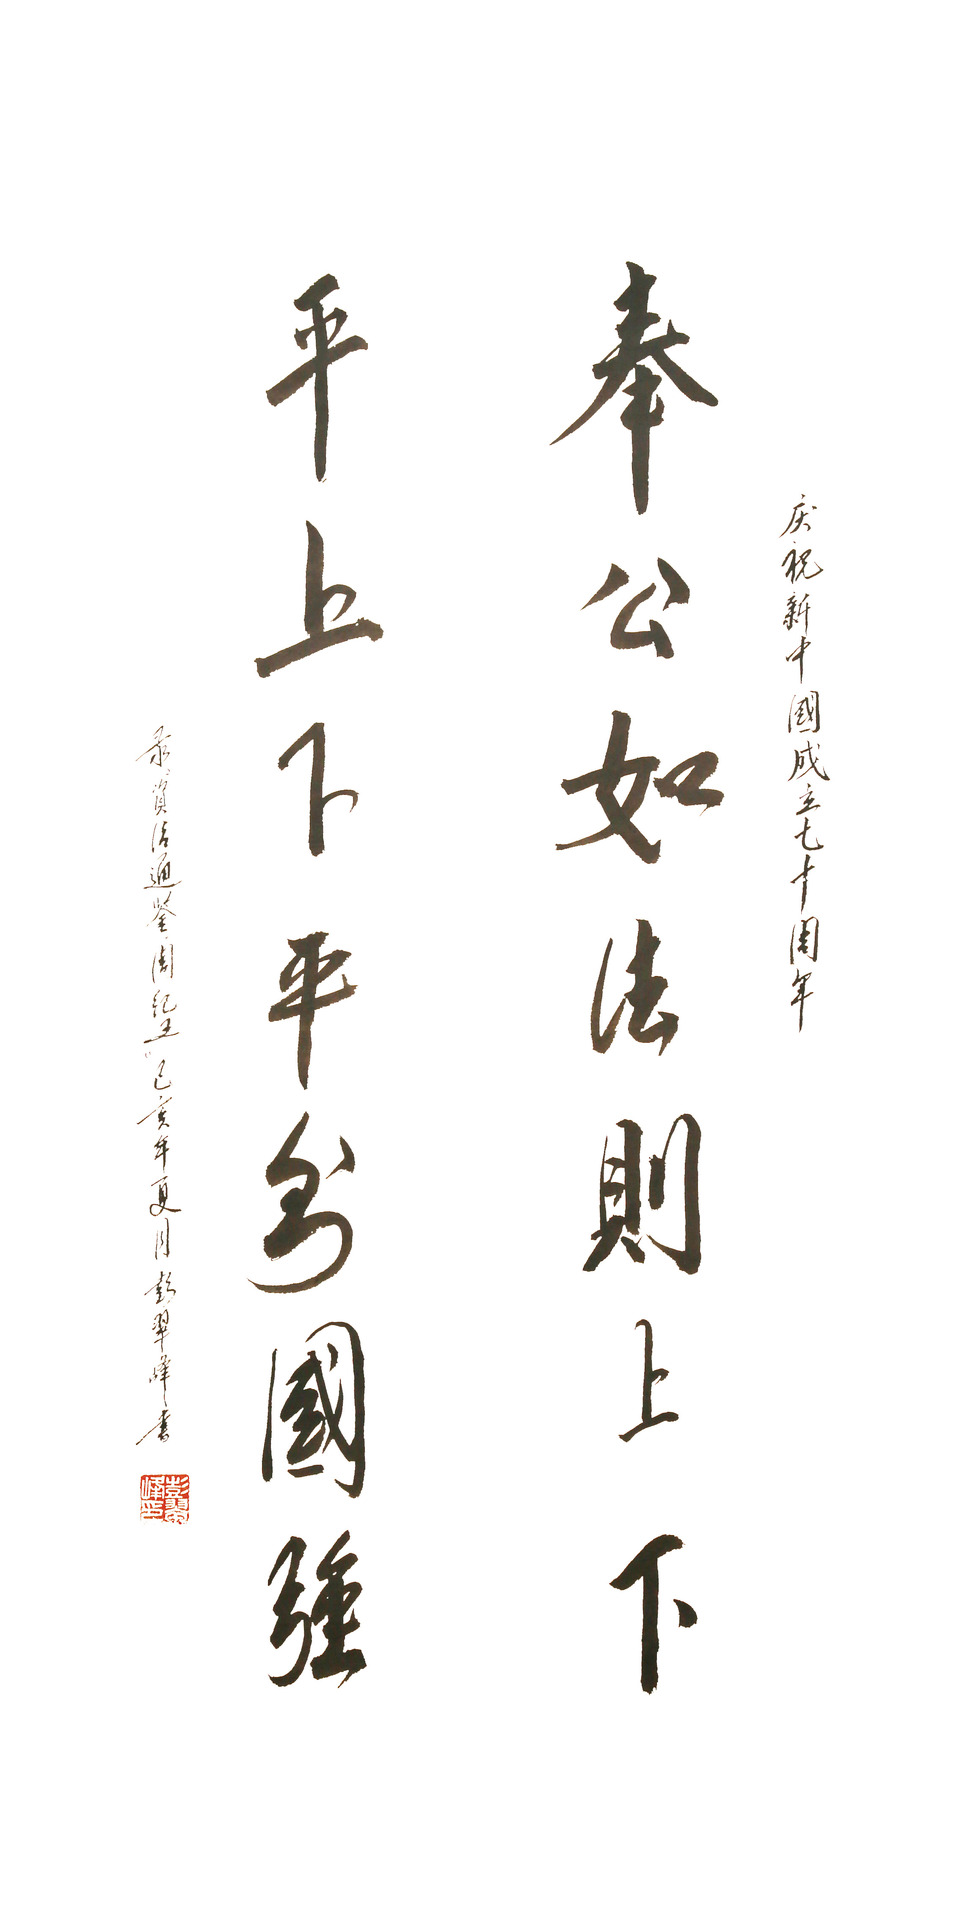 庆祝新中國成立七十周年
奉公如法則上下
平上下平則國強
录資治通鑒周紀五己亥年夏月彭翠峰書
彭翠峰印